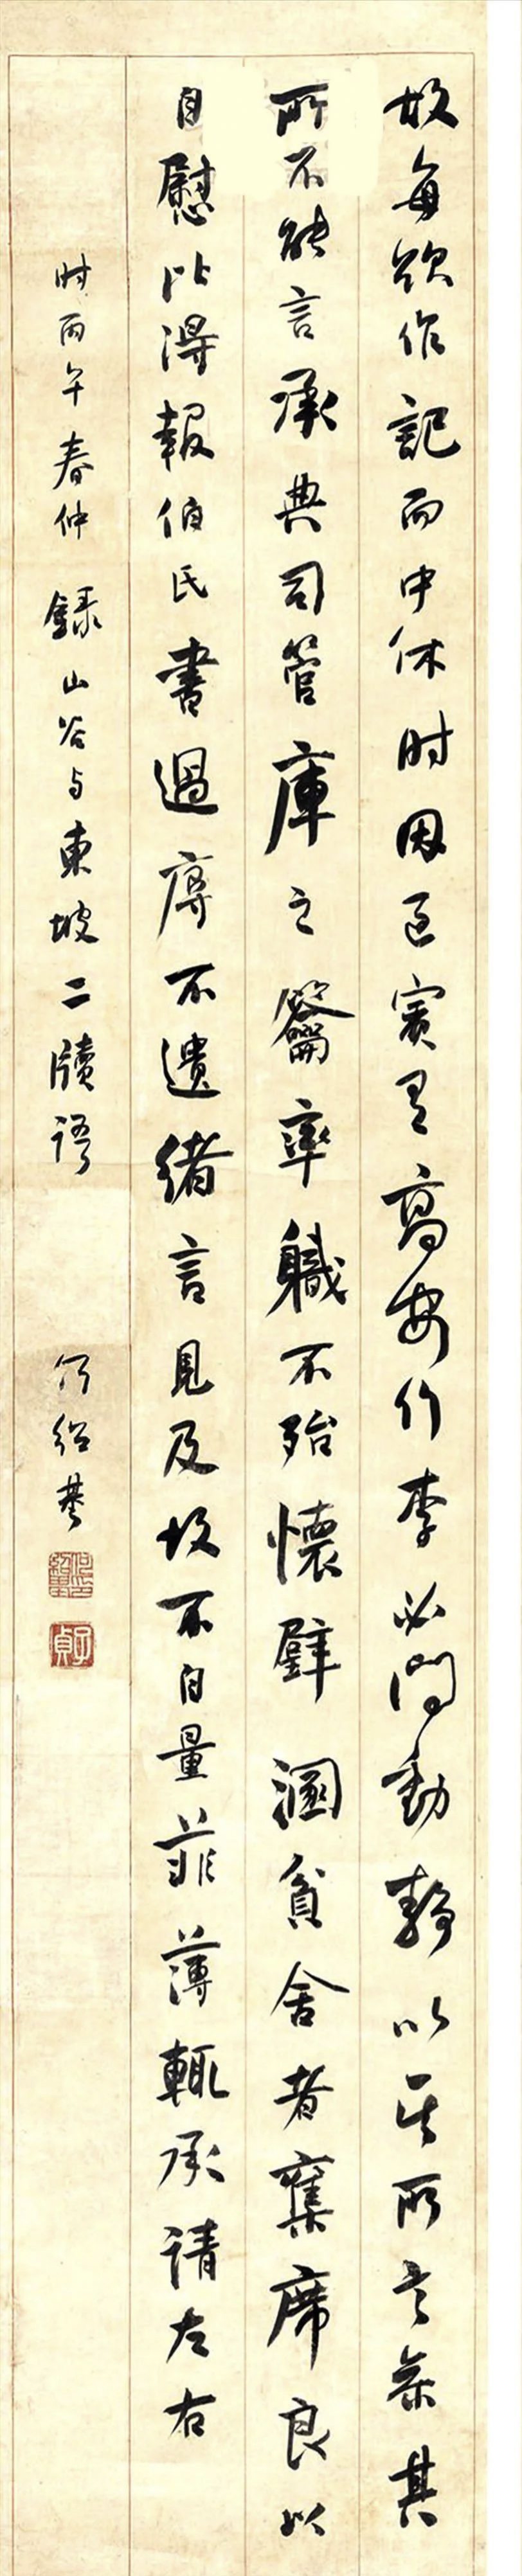 故每欲作記而中休時因過賓有高安行李必問動靜以其所言參其
所不能言承典司管庫之籥率職不殆懷璧溷貧舍者奪席良以
自慰比得報伯氏書過辱不遺緒言見及故不自量菲薄輒承請左右
時丙午春仲 錄山谷與東坡二牘語 何紹基
何紹基印
子貞